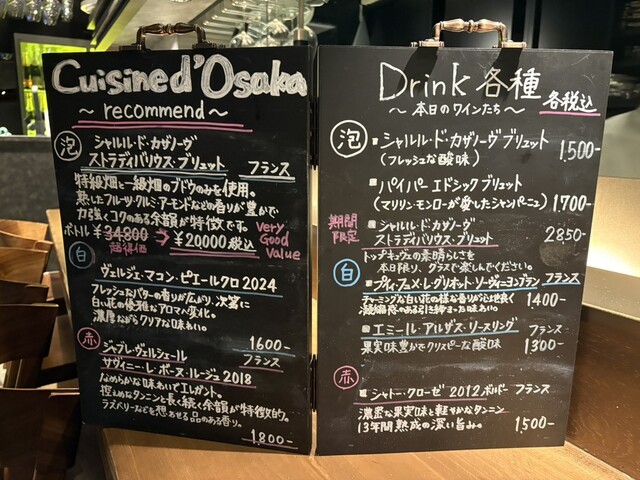 Cuisine d'Osaka
〜recommend〜
泡
シャルル・ド・カザノーヴ
ストラディバリウス・ブリュット フランス
特級畑と一級畑のブドウのみを使用。
熟したフルーツ・クルミ・アーモンドなどの香りが豊かで
力強くコクのある余韻が特徴です。
ボトル ¥34800 → ¥20000税込
超得価
Very Good Value
白
ヴェルジェ・マコン・ピエールクロ 2024
フレッシュなバターの香りが広がり、次第に
白い花の優雅なアロマへ変化。
濃厚ながらクリアな味わい。
1600-
赤
フランス
サヴィニー・レ・ボーヌ・ルージュ 2018
なめらかな味わいでエレガント。
控えめなタンニンと長く続く余韻が特徴的。
ラズベリーなどを想わせる品のある香り。
1,800-
Drink 各種
〜本日のワインたち〜
各税込
泡
シャルル・ド・カザノーヴ ブリュット
(フレッシュな酸味)
1,500-
パイパー エドシック ブリュット
(マリリン・モンローが愛したシャンパーニュ)
1,700-
期間限定
シャルル・ド・カザノーヴ
ストラディバリウス・ブリュット
2850-
トップキュヴェの素晴らしさを
本日限り、グラスで楽しんでください。
白
フランス
チャーミングな白い花の様な香りが心地良く
1400-
エミール・アルザス・リースリング フランス
果実味豊かでクリスピーな酸味
1300-
赤
シャトー・クローゼ 2012 ボルドー フランス
濃密な果実味と軽やかなタンニン
13年間熟成の深い旨み。
1,500-